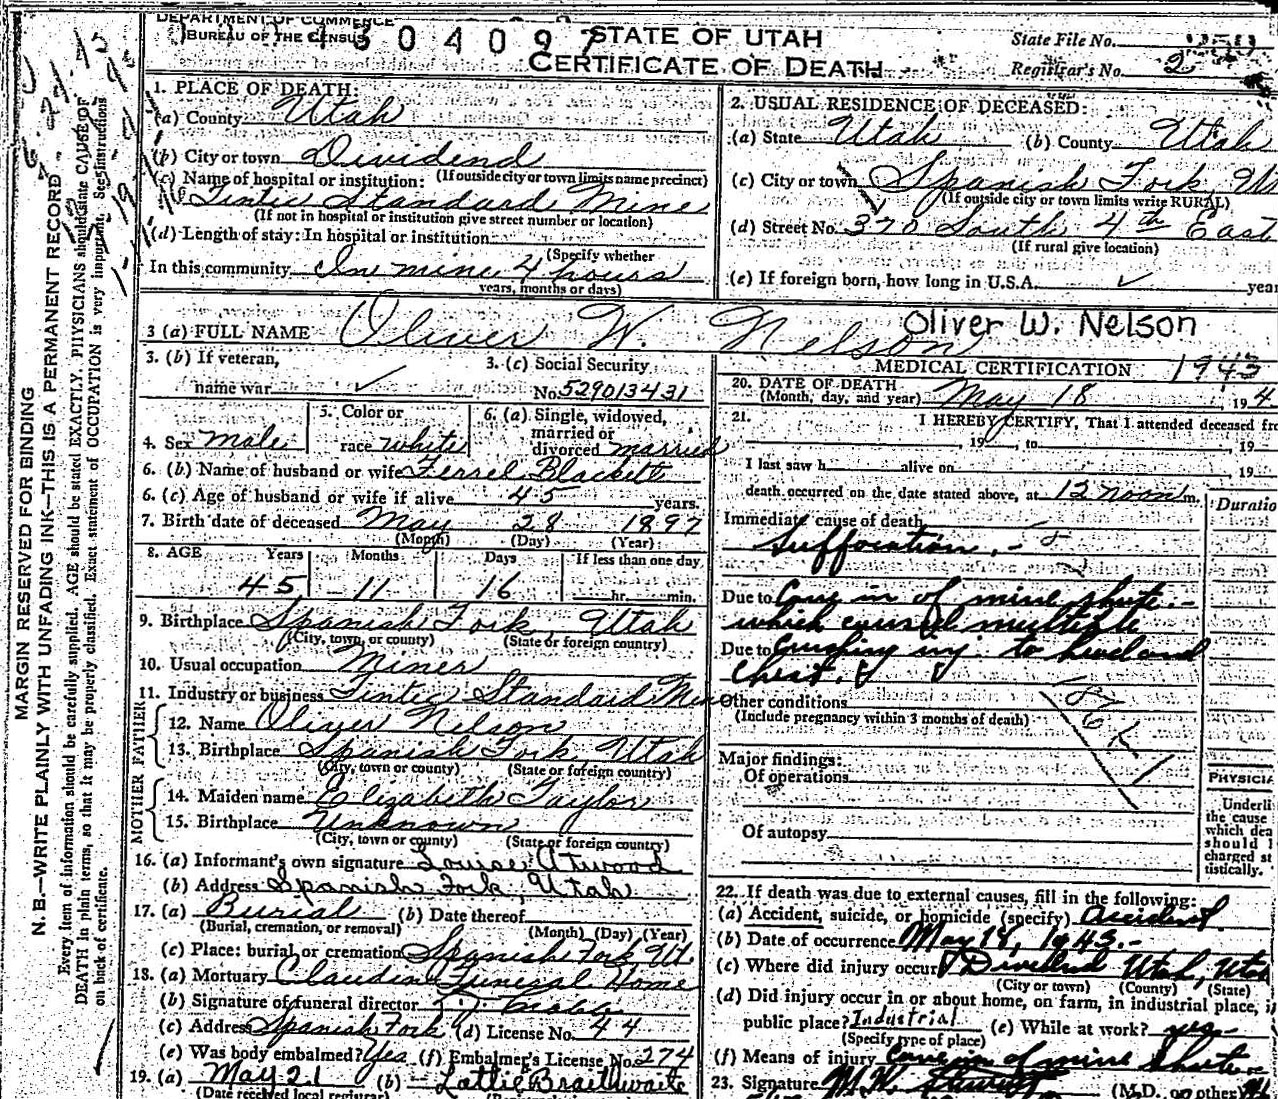 DEPARTMENT OF COMMERCE
BUREAU OF THE CENSUS
STATE OF UTAH
CERTIFICATE OF DEATH
State File No.
Registrar's No. 2
MARGIN RESERVED FOR BINDING
N. B.—WRITE PLAINLY WITH UNFADING INK—THIS IS A PERMANENT RECORD
Every item of information should be carefully supplied. AGE should be stated EXACTLY. PHYSICIANS should state CAUSE OF
DEATH in plain terms, so that it may be properly classified. Exact statement of OCCUPATION is very important. See instructions
on back of certificate.
1. PLACE OF DEATH:
(a) County Utah
(b) City or town Dividend
(If outside city or town limits name precinct)
(c) Name of hospital or institution:
Tintic Standard Mine
(If not in hospital or institution give street number or location)
(d) Length of stay: In hospital or institution
(Specify whether
In this community In mine 4 hours
years, months or days)
2. USUAL RESIDENCE OF DECEASED:
(a) State Utah (b) County Utah
(c) City or town Spanish Fork, Ut
(If outside city or town limits write RURAL)
(d) Street No. 370 South 4th East
(If rural give location)
(e) If foreign born, how long in U.S.A. ✓ year
3 (a) FULL NAME Oliver W. Nelson
Oliver W. Nelson
3. (b) If veteran,
name war ✓
3. (c) Social Security
No. 529013431
4. Sex male
5. Color or
race white
6. (a) Single, widowed,
married or
divorced married
6. (b) Name of husband or wife Ferrel Blackett
6. (c) Age of husband or wife if alive 45 years.
7. Birth date of deceased May 28 1897
(Month) (Day) (Year)
8. AGE Years Months Days If less than one day
45 11 16 hr. min.
9. Birthplace Spanish Fork Utah
(City, town, or county) (State or foreign country)
10. Usual occupation Miner
11. Industry or business Tintic Standard Mine
FATHER
12. Name Oliver Nelson
13. Birthplace Spanish Fork, Utah
(City, town or county) (State or foreign country)
MOTHER
14. Maiden name Elizabeth Taylor
15. Birthplace Unknown
(City, town or county) (State or foreign country)
16. (a) Informant's own signature Louise Atwood
(b) Address Spanish Fork, Utah
17. (a) Burial (b) Date thereof
(Burial, cremation, or removal) (Month) (Day) (Year)
(c) Place: burial or cremation Spanish Fork Ut.
18. (a) Mortuary Claudin Funeral Home
(b) Signature of funeral director
(c) Address Spanish Fork (d) License No. 44
(e) Was body embalmed? Yes (f) Embalmer's License No. 274
19. (a) May 21 (b) Lottie Braithwaite
(Date received local registrar)
MEDICAL CERTIFICATION 1943
20. DATE OF DEATH
(Month, day, and year) May 18, 194
21. I HEREBY CERTIFY, That I attended deceased fr
19 , to , 19
I last saw h alive on , 19
death occurred on the date stated above, at 12 noon m.
Duratio
Immediate cause of death
Suffocation.
Due to Cave in of mine shute.
which caused multiple
Due to Crushing inj. to head and
chest.
Other conditions
(Include pregnancy within 3 months of death)
Major findings:
Of operations
Of autopsy
PHYSICIA
Underli
the cause
which dea
should
charged st
tistically.
22. If death was due to external causes, fill in the following:
(a) Accident, suicide, or homicide (specify) Accident.
(b) Date of occurrence May 18, 1943.
(c) Where did injury occur? Dividend Utah, Utah
(City or town) (County) (State)
(d) Did injury occur in or about home, on farm, in industrial place, i
public place? Industrial (e) While at work? yes
(Specify type of place)
(f) Means of injury Cave in of mine shute
23. Signature
(M.D. or other)